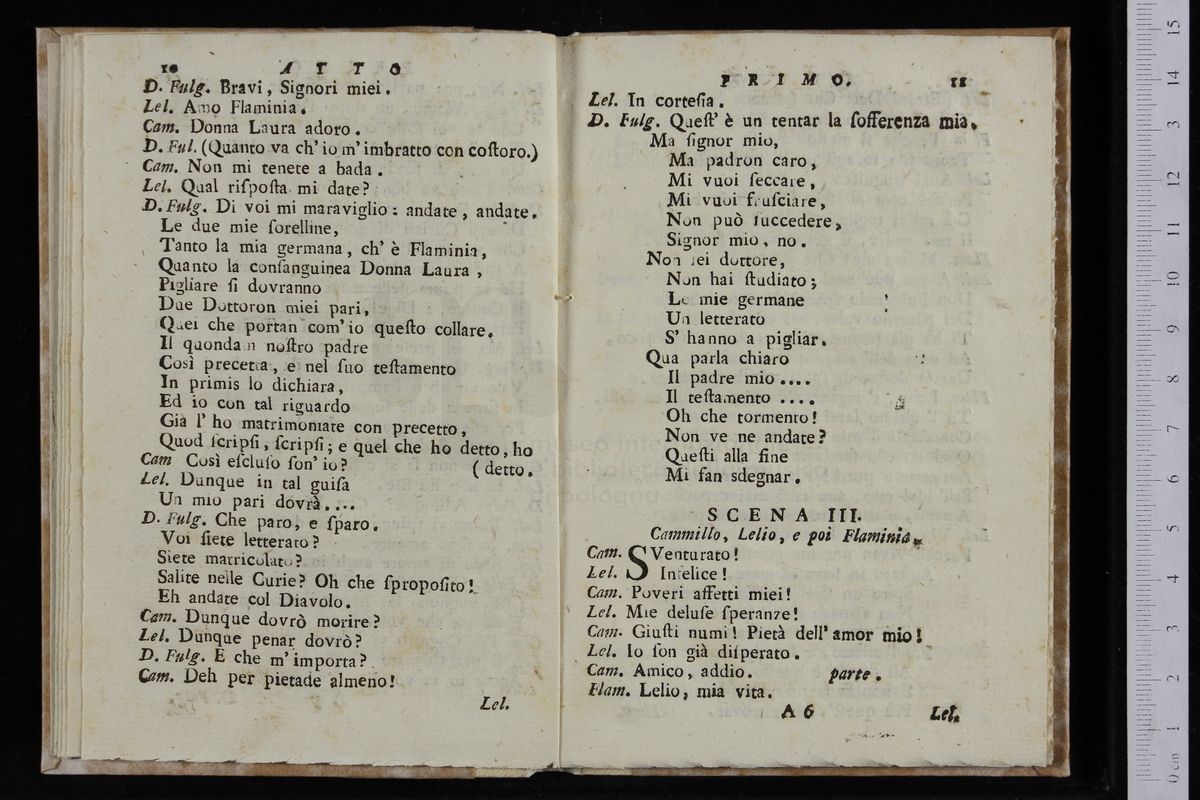 10 ATTO
D. Fulg. Bravi, Signori miei.
Lel. Amo Flaminia.
Cam. Donna Laura adoro.
D. Ful. (Quanto va ch' io m' imbratto con coſtoro.)
Cam. Non mi tenete a bada.
Lel. Qual riſpoſta mi date?
D. Fulg. Di voi mi maraviglio: andate, andate.
Le due mie ſorelline,
Tanto la mia germana, ch' è Flaminia,
Quanto la conſanguinea Donna Laura,
Pigliare ſi dovranno
Due Dottoron miei pari,
Quei che portan com' io queſto collare.
Il quondam noſtro padre
Così precetta, e nel ſuo teſtamento
In primis lo dichiara,
Ed io con tal riguardo
Già l' ho matrimoniate con precetto,
Quod ſcripſi, ſcripſi; e quel che ho detto, ho
Cam Così eſcluſo ſon' io? (detto.
Lel. Dunque in tal guiſa
Un mio pari dovrà....
D. Fulg. Che paro, e ſparo.
Voi ſiete letterato?
Siete matricolato?
Salite nelle Curie? Oh che ſpropoſito!
Eh andate col Diavolo.
Cam. Dunque dovrò morire?
Lel. Dunque penar dovrò?
D. Fulg. E che m' importa?
Cam. Deh per pietade almeno!
Lel.
PRIMO. 11
Lel. In corteſia.
D. Fulg. Queſt' è un tentar la ſofferenza mia.
Ma ſignor mio,
Ma padron caro,
Mi vuoi ſeccare,
Mi vuoi fruſciare,
Non può ſuccedere,
Signor mio, no.
Non ſei dottore,
Non hai ſtudiato;
Le mie germane
Un letterato
S' hanno a pigliar.
Qua parla chiaro
Il padre mio....
Il teſtamento ....
Oh che tormento!
Non ve ne andate?
Queſti alla fine
Mi fan sdegnar.
SCENA III.
Cammillo, Lelio, e poi Flaminia.
Cam. SVenturato!
Lel. Infelice!
Cam. Poveri affetti miei!
Lel. Mie deluſe ſperanze!
Cam. Giuſti numi! Pietà dell' amor mio!
Lel. Io ſon già diſperato.
Cam. Amico, addio. parte.
Flam. Lelio, mia vita.
A 6 Lel.